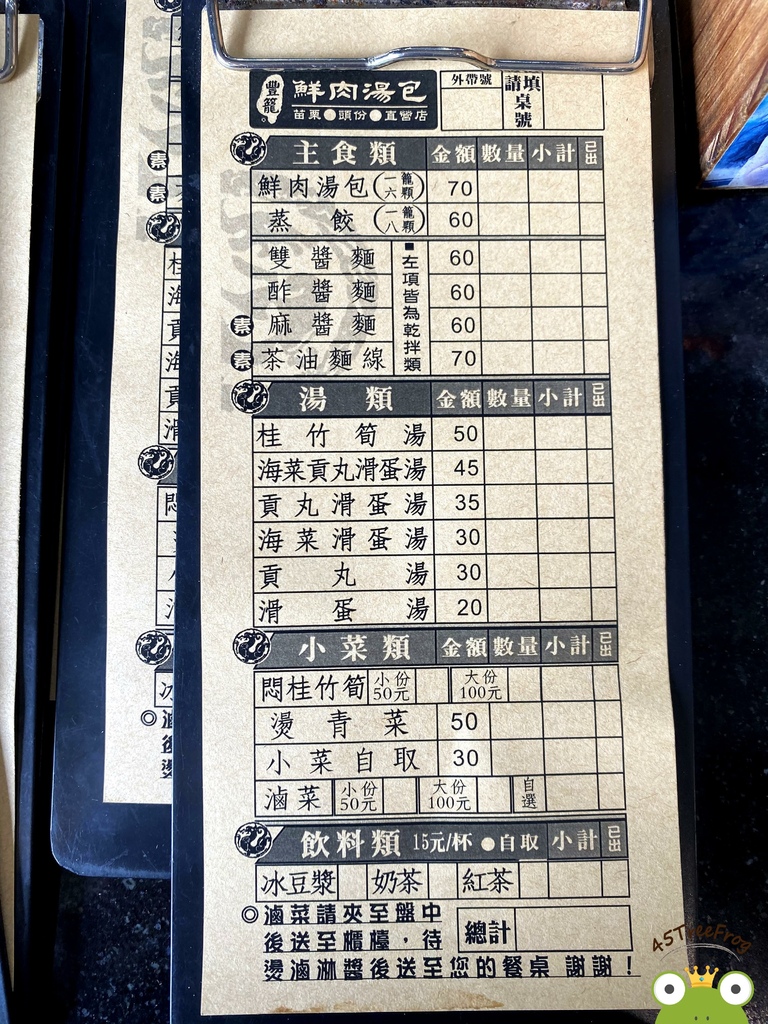 豐籠 鮮肉湯包 外帶號 請填桌號
苗栗 頭份 直營店
主食類 金額 數量 小計 已出
鮮肉湯包(一籠六顆) 70
蒸餃(一籠八顆) 60
雙醬麵 60
酢醬麵 60
素 麻醬麵 60
素 茶油麵線 70
■左項皆為乾拌類
湯類 金額 數量 小計 已出
桂竹筍湯 50
海菜貢丸滑蛋湯 45
貢丸滑蛋湯 35
海菜滑蛋湯 30
貢丸湯 30
滑蛋湯 20
小菜類 金額 數量 小計 已出
悶桂竹筍 小份50元 大份100元
燙青菜 50
小菜自取 30
滷菜 小份50元 大份100元 自選
飲料類 15元/杯 ●自取 小計 已出
冰豆漿 奶茶 紅茶
◎滷菜請夾至盤中
後送至櫃檯，待
燙滷淋醬後送至您的餐桌 謝謝！
總計
素
素
桂
海
貢
海
貢
滑
悶
冰
◎滷
後
燙
45TreeFrog